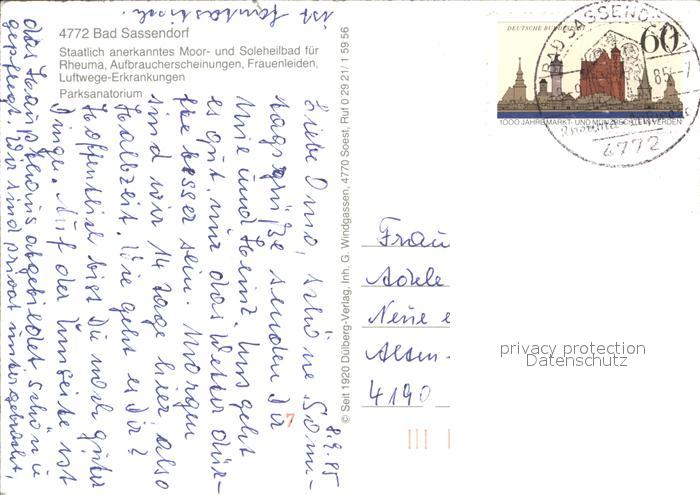 4772 Bad Sassendorf
Staatlich anerkanntes Moor- und Soleheilbad für
Rheuma, Aufbraucherscheinungen, Frauenleiden,
Luftwege-Erkrankungen
Parksanatorium
8.9.85
Liebe Oma, schöne Sonn-
tagsgrüße senden Dir
Uwe und Heinz. Uns geht
es gut, nur das Wetter dürf-
te besser sein. Morgen
sind wir 14 Tage hier, also
Halbzeit. Wie geht es Dir?
Hoffentlich bist Du noch guter
Dinge. Auf der Umseite ist
das Haupthaus abgebildet schön u.
gepflegt. Wir sind privat untergebracht,
ist fantastisch.
© Seit 1920 Dülberg-Verlag, Inh. G. Windgassen, 4770 Soest, Ruf 0 29 21 / 1 59 56
7
DEUTSCHE BUNDESPOST
60
1000 JAHRE MARKT- UND MÜNZRECHT VERDEN
BAD SASSENDORF
85-7
4772
Frau
Adele
Neue
4190
privacy protection
Datenschutz